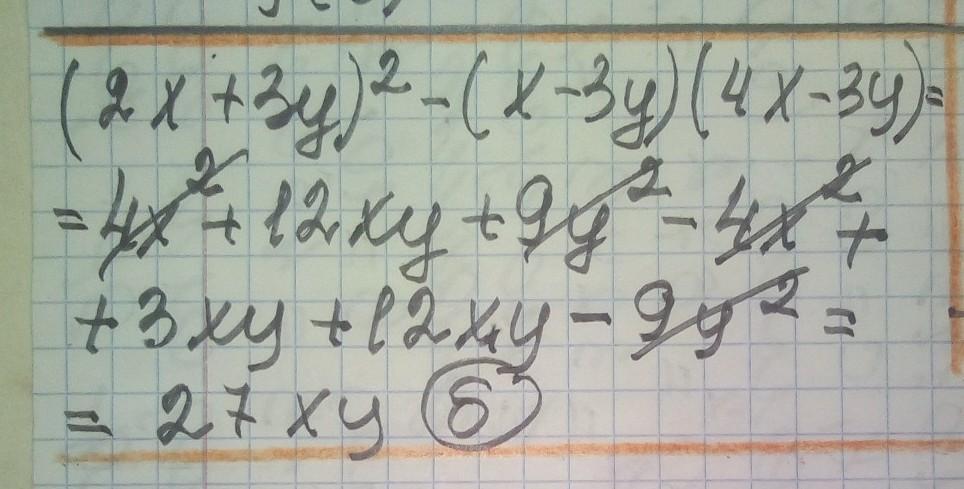 (2x+3y)²-(x-3y)(4x-3y)=
=4x²+12xy+9y²-4x²+
+3xy+12xy-9y²=
=27xy б